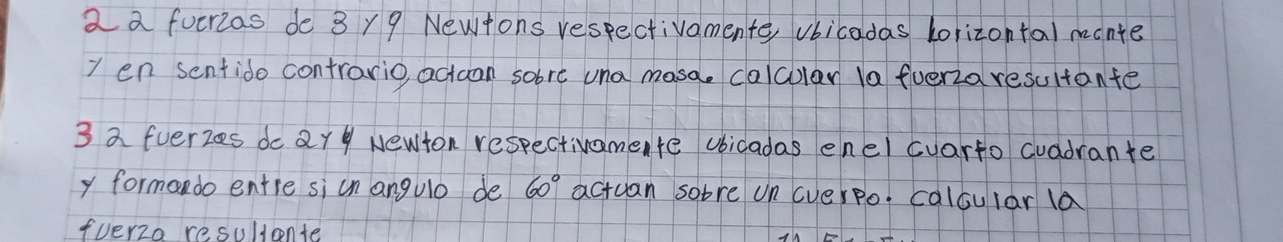 2 2 fuerzas de 3 y 9 Newtons respectivamente, ubicadas horizontal mente
y en sentido contrario, actuan sobre una masa. calcular la fuerza resultante
3 2 fuerzas de 2 y 4 Newton respectivamente ubicadas en el cuarto cuadrante
y formando entre si un angulo de 60° actuan sobre un cuerpo. calcular la
fuerza resultante